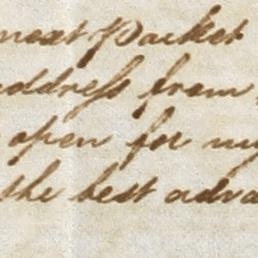 next Packet
address from
open for my
the best adva